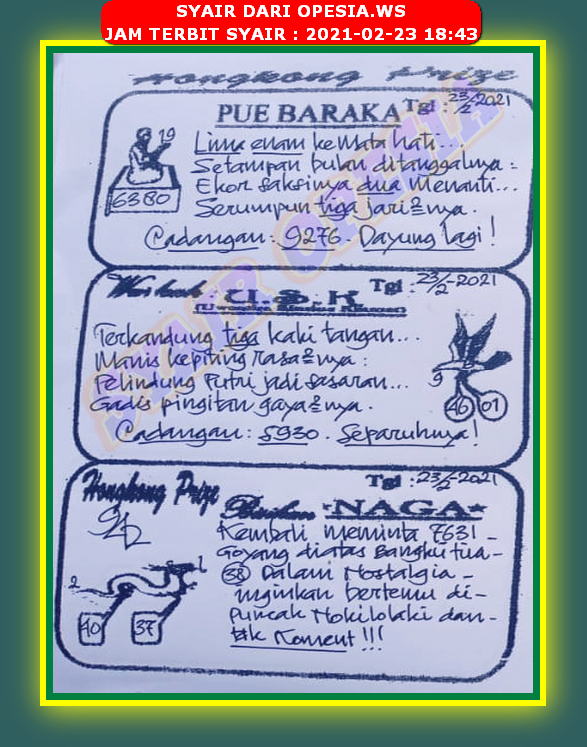 SYAIR DARI OPESIA.WS
JAM TERBIT SYAIR : 2021-02-23 18:43
Hongkong Prize
PUE BARAKA Tgl : 23/2-2021
19
6380
Lima enam ke mata hati...
Setampan bulan ditanggalnya :
Ekor saksinya dua menanti...
Serumpun tiga jari2nya.
Cadangan : 9276. Dayung lagi !
C.S.K Tgl : 23/2-2021
Terkandung tiga kaki tangan...
Manis kepiting rasa2nya :
Pelindung Putri jadi sasaran...
Gadis pingitan gaya2nya.
Cadangan : 5930. Separuhnya !
9
46 01
Hongkong Prize
Tgl : 23/2-2021
*NAGA*
Kembali meminta 7631 -
Goyang diatas Bangku tua -
38 Dalam Nostalgia -
inginkan bertemu di -
Puncak Mokilolaki dan -
tak Koment !!!
2 1
40 37
SYAIR OPESIA